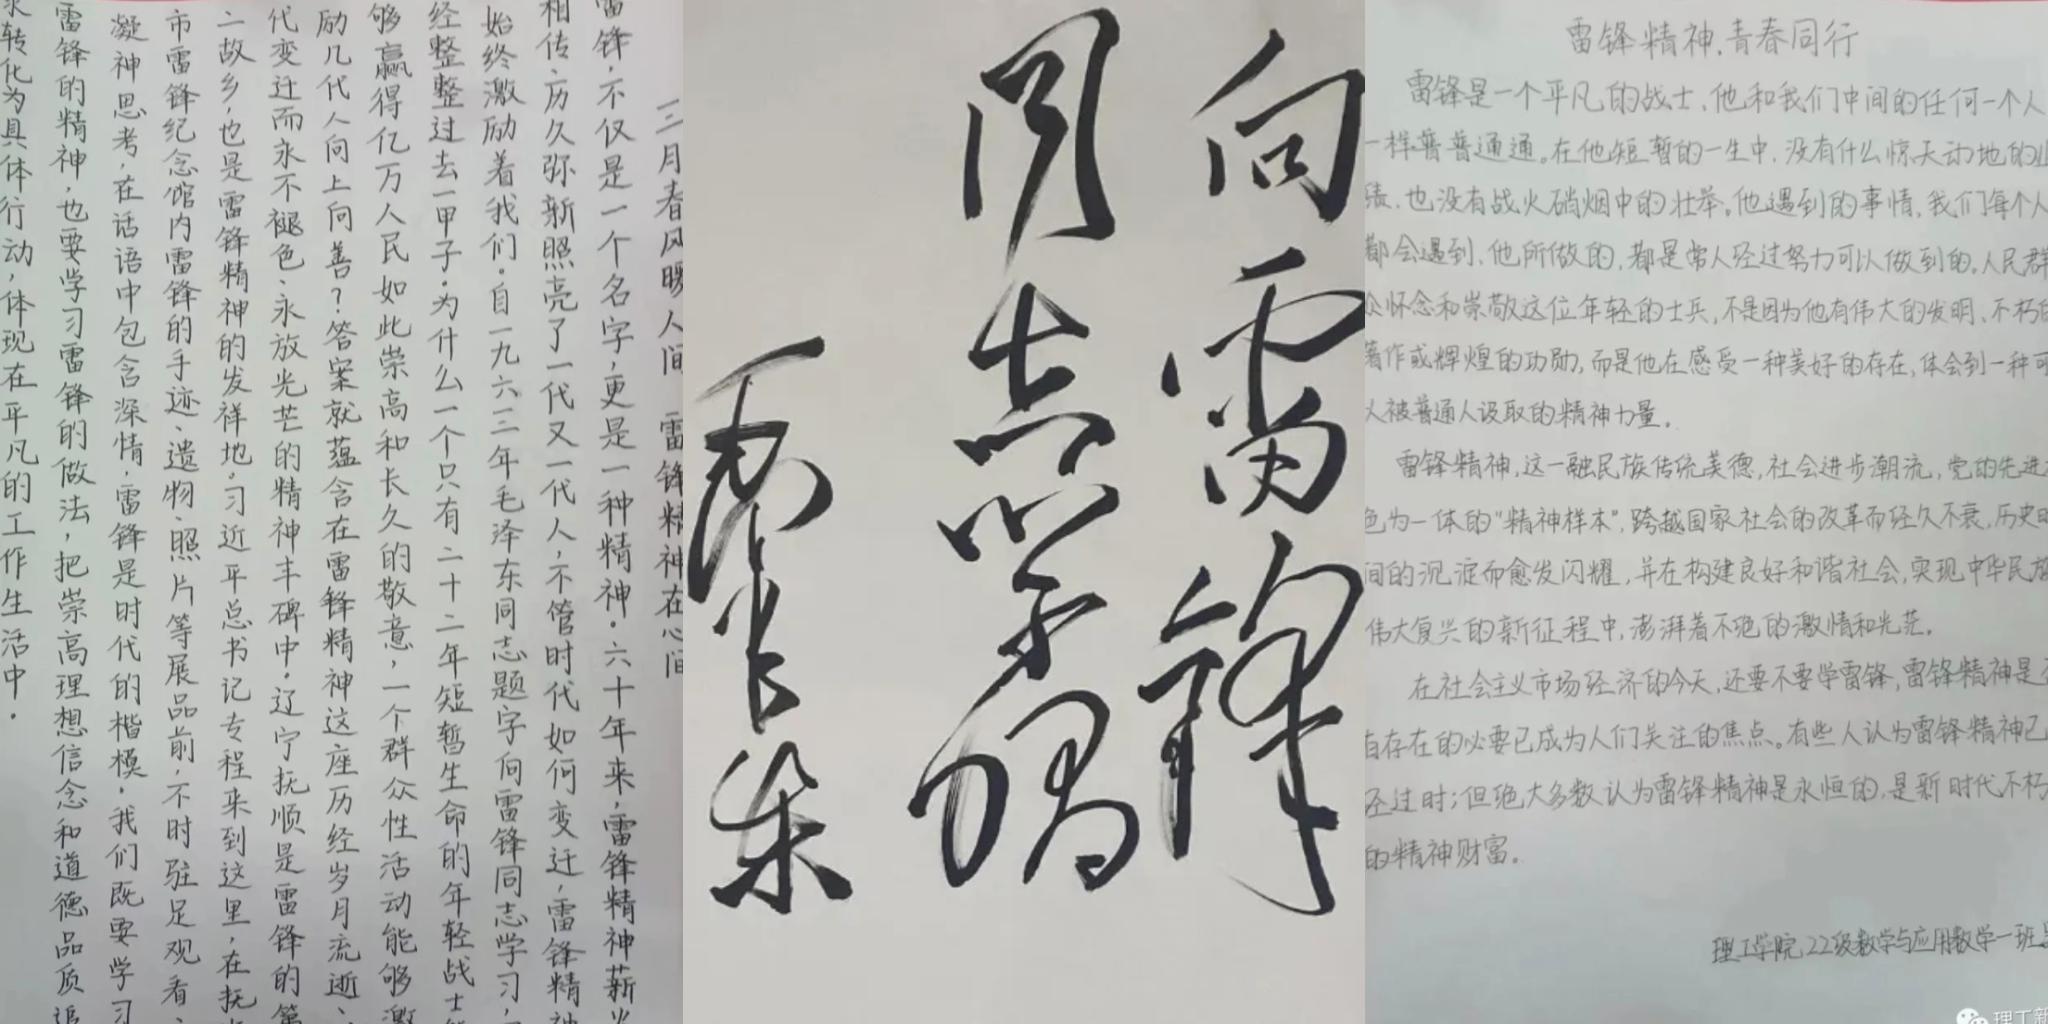 三月春风暖人间 雷锋精神在心间
雷锋，不仅是一个名字，更是一种精神。六十年来，雷锋精神薪火
相传、历久弥新照亮了一代又一代人，不管时代如何变迁，雷锋精神
始终激励着我们。自一九六三年毛泽东同志题字向雷锋同志学习，
经整整过去一甲子。为什么一个只有二十二年短暂生命的年轻战士
够赢得亿万人民如此崇高和长久的敬意，一个群众性活动能够激
励几代人向上向善？答案就蕴含在雷锋精神这座历经岁月流逝、
代变迁而永不褪色、永放光芒的精神丰碑中。辽宁抚顺是雷锋的第
二故乡，也是雷锋精神的发祥地，习近平总书记专程来到这里，在抚
市雷锋纪念馆内雷锋的手迹、遗物、照片等展品前，不时驻足观看、
凝神思考，在话语中包含深情，雷锋是时代的楷模，我们既要学习
雷锋的精神，也要学习雷锋的做法，把崇高理想信念和道德品质追
求转化为具体行动，体现在平凡的工作生活中。
向雷锋
同志学习
毛泽东
雷锋精神，青春同行
雷锋是一个平凡的战士，他和我们中间的任何一个人
一样普普通通。在他短暂的一生中，没有什么惊天动地的业
绩，也没有战火硝烟中的壮举。他遇到的事情，我们每个人
都会遇到，他所做的，都是常人经过努力可以做到的。人民群
众怀念和崇敬这位年轻的士兵，不是因为他有伟大的发明、不朽的
著作或辉煌的功勋，而是他在感受一种美好的存在，体会到一种可
以被普通人汲取的精神力量。
雷锋精神，这一融民族传统美德，社会进步潮流，党的先进本
色为一体的"精神样本"，跨越国家社会的改革而经久不衰，历史时
间的沉淀而愈发闪耀，并在构建良好和谐社会，实现中华民族
伟大复兴的新征程中，澎湃着不绝的激情和光芒。
在社会主义市场经济的今天，还要不要学雷锋，雷锋精神是否
有存在的必要已成为人们关注的焦点。有些人认为雷锋精神已
经过时；但绝大多数认为雷锋精神是永恒的，是新时代不朽
的精神财富。
理工学院22级数学与应用数学一班
理工新